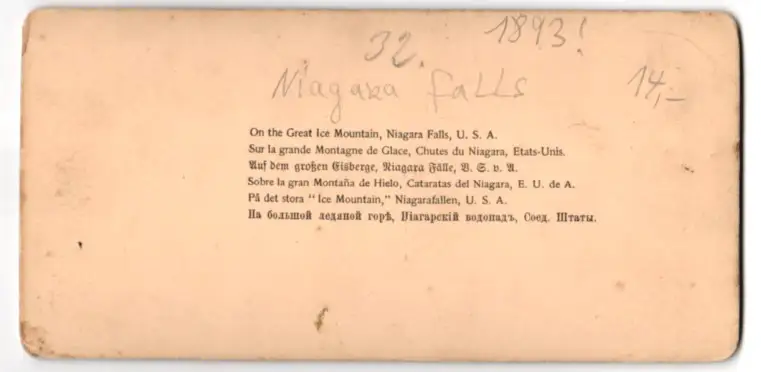 32.
1893!
Niagara Falls
14,-
On the Great Ice Mountain, Niagara Falls, U. S. A.
Sur la grande Montagne de Glace, Chutes du Niagara, Etats-Unis.
Auf dem großen Eisberge, Niagara Fälle, V. S. v. A.
Sobre la gran Montaña de Hielo, Cataratas del Niagara, E. U. de A.
På det stora "Ice Mountain," Niagarafallen, U. S. A.
На большой ледяной горѣ, Ніагарскій водопадъ, Соед. Штаты.